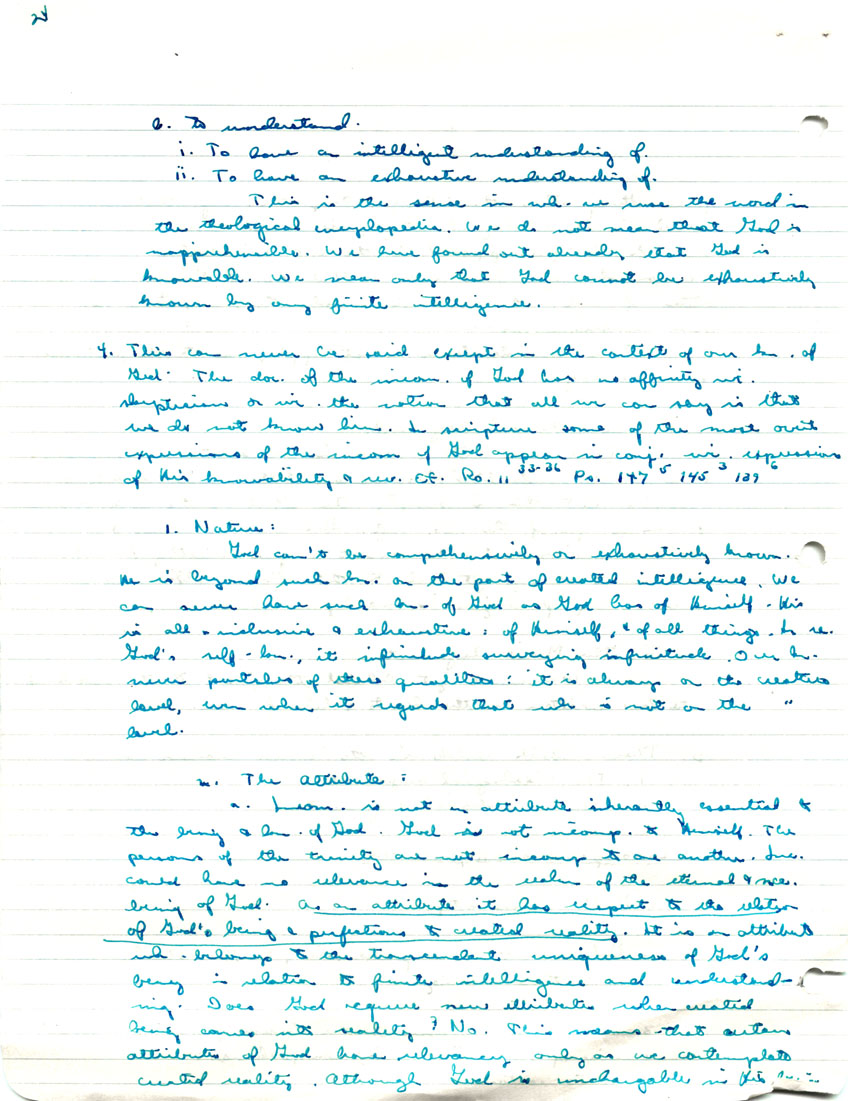 24
b. To understand.
i. To have an intelligent understanding of.
ii. To have an exhaustive understanding of.
This is the sense in wh. we use the word in
the theological encyclopedia. We do not mean that God is
inapprehensible. We have found out already that God is
knowable. We mean only that God cannot be exhaustively
known by any finite intelligence.
4. This can never be said except in the context of our kn. of
God. The doc. of the incom. of God has no affinity wi.
skepticism or wi. the notion that all we can say is that
we do not know him. In scripture some of the most overt
expressions of the incom of God appear in conj. wi. expressions
of His knowability & rev. Cf. Ro. 11 33-36 Ps. 147 5 145 3 139 6
l. Nature:
God can't be comprehensively or exhaustively known.
He is beyond such kn. on the part of created intelligence. We
can never have such kn. of God as God has of Himself. His
is all-inclusive & exhaustive: of Himself, & of all things. In re.
God's self-kn., it is infinitude surveying infinitude. Our kn.
never partakes of these qualities: it is always on the creature
level, even when it regards that wh. is not on the "
level.
m. The attribute:
a. Incom. is not an attribute inherently essential to
the being & kn. of God. God is not incomp. to Himself. The
persons of the trinity are not incomp to one another. Inc.
could have no relevance in the realm of the eternal & nec.
being of God. As an attribute it has respect to the relation
of God's being & perfections to created reality. It is an attribute
wh. belongs to the transcendent uniqueness of God's
being in relation to finite intelligence and understand-
ing. Does God require new attributes when created
being comes into reality? No. This means that certain
attributes of God have relevancy only as we contemplate
created reality. Although God is unchangable in His